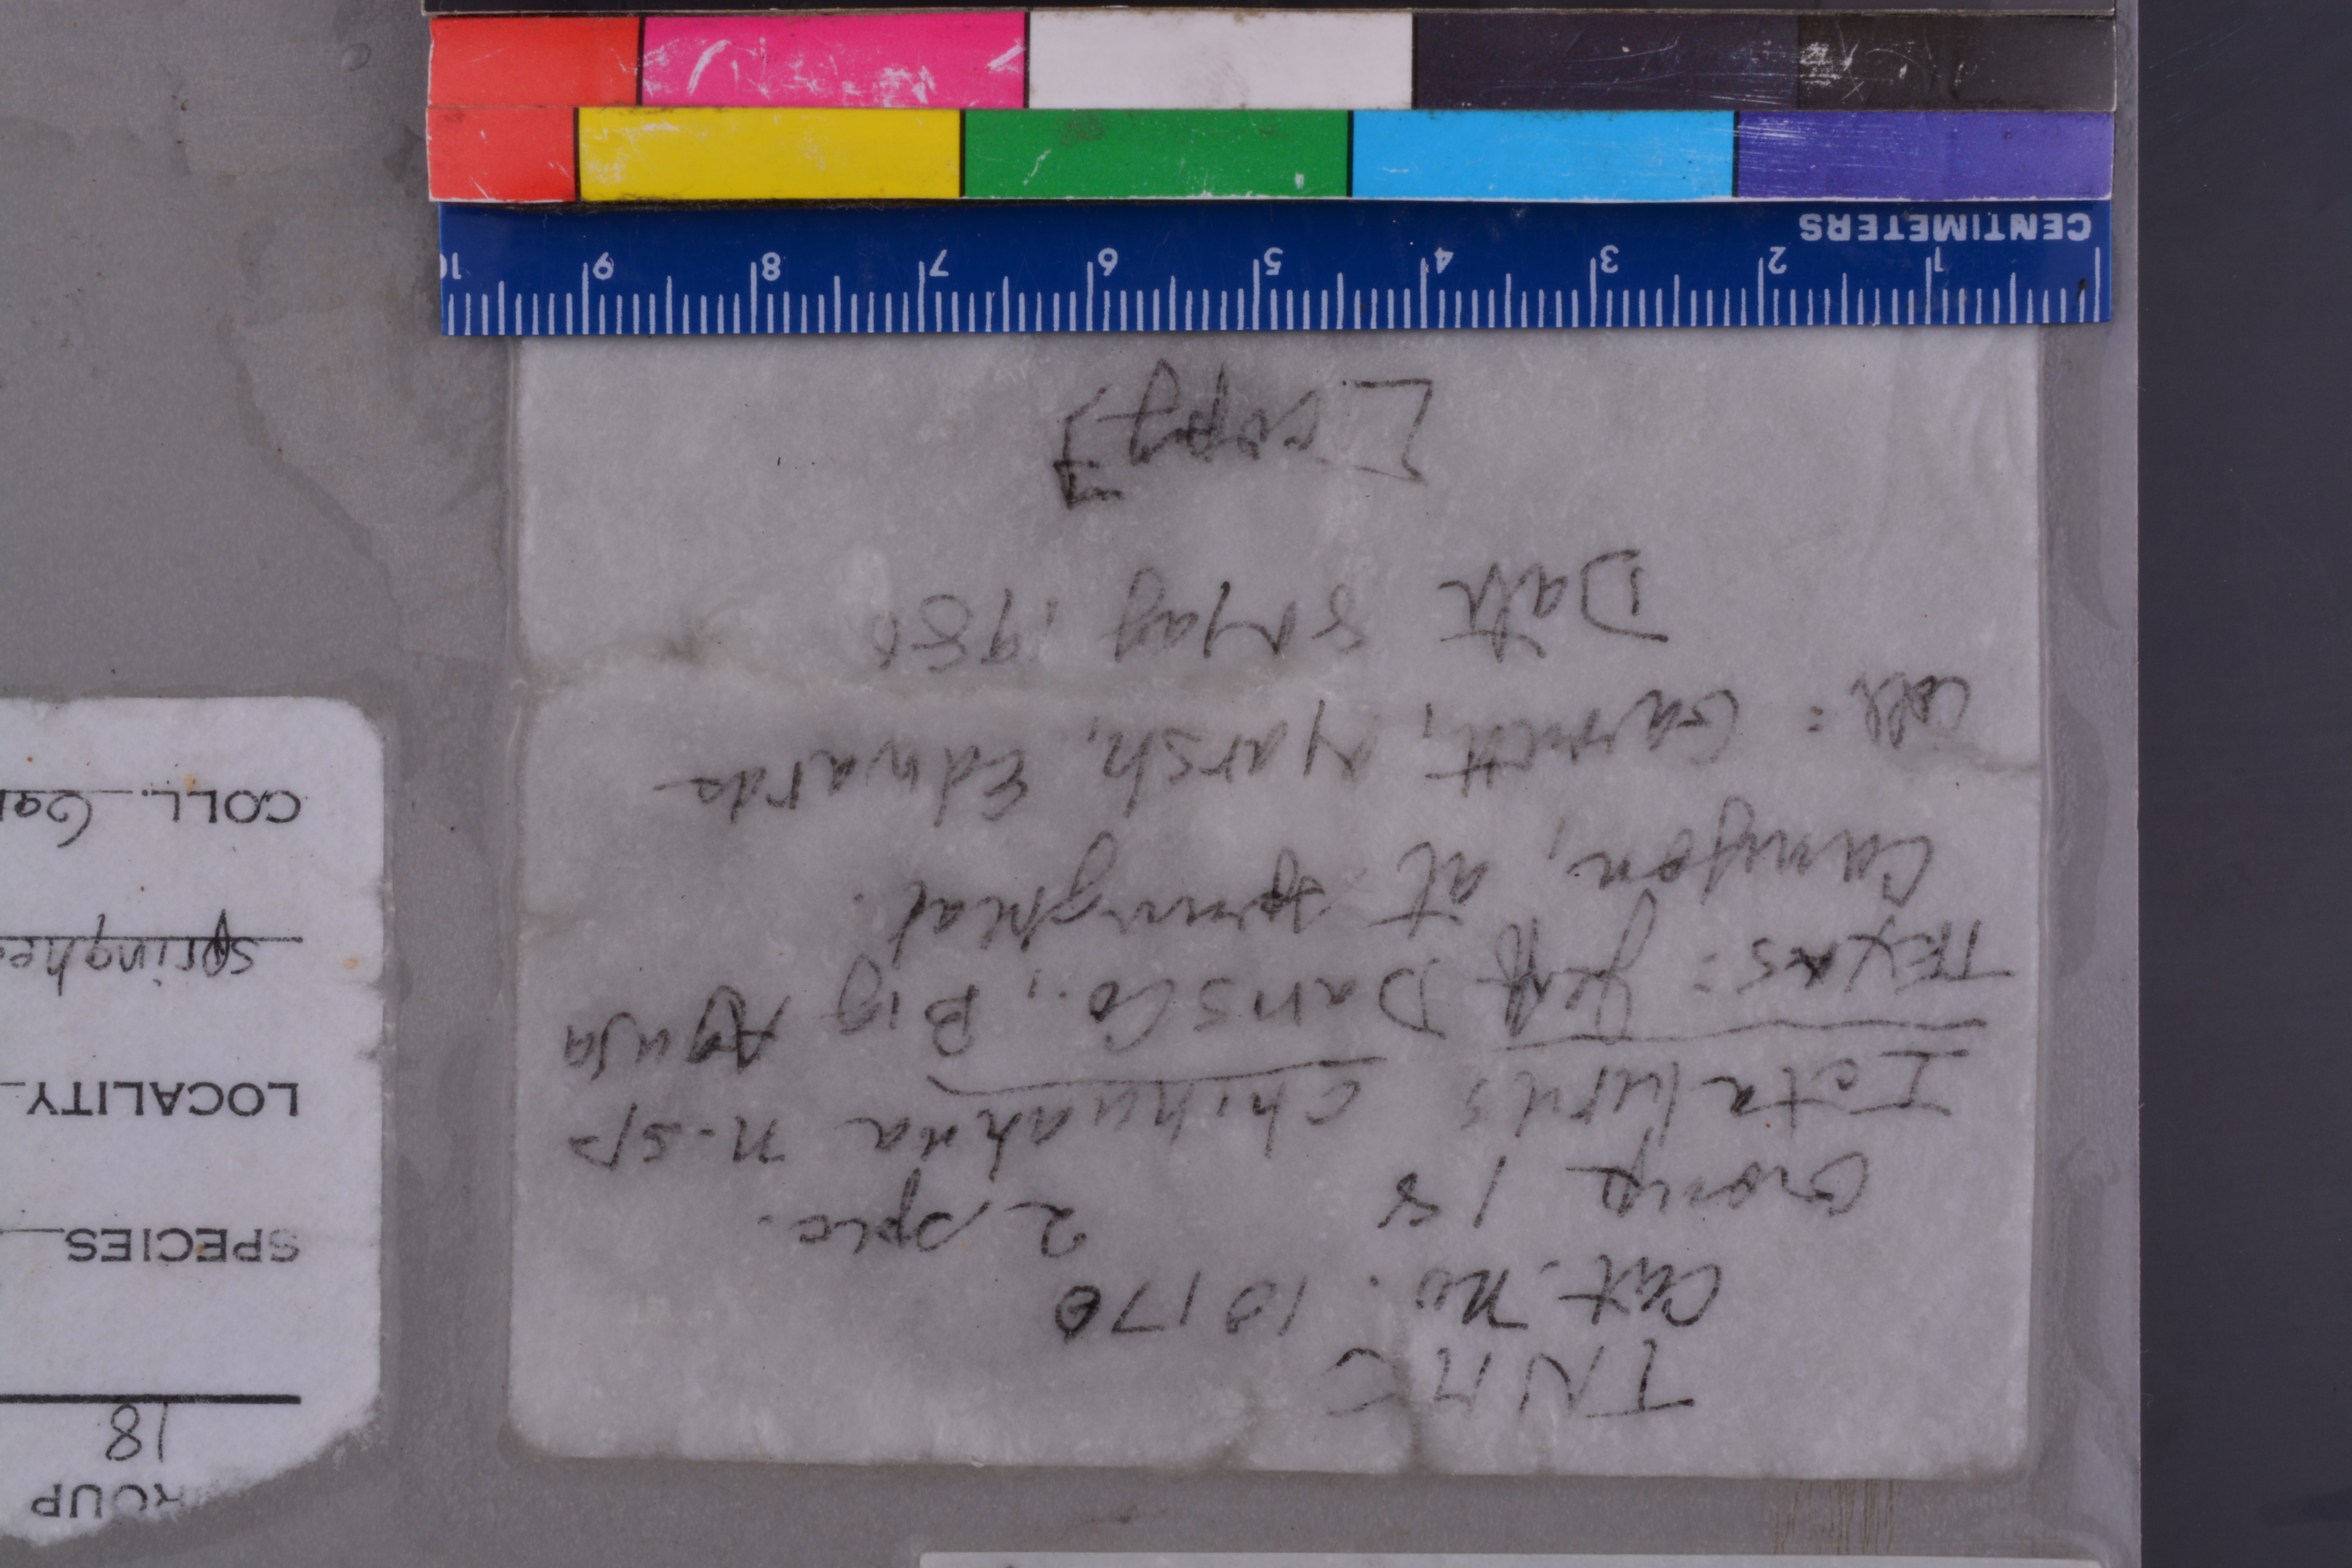 TNHC
Cat. no. 10170
Group 18 2 spec.
Ictalurus chihuahua n. sp
TEXAS: Jeff Davis Co., Big Aguja
Canyon, at springhead.
Coll: Garrett, Marsh, Edwards
Date 8 May 1986
[copy]
CENTIMETERS
1 2 3 4 5 6 7 8 9 10
ROUP
18
SPECIES
LOCALITY
springhe
COLL. Gar